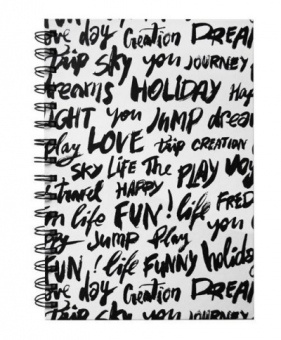 ove day Creation DREAM
Trip Sky you JOURNEY
dreams HOLIDAY Hap
IGHT you JUMP dream
play LOVE Trip CREATION
SKY LIFE The PLAY
travel HAPPY
life FUN! life FRED
you
Jump Play
FUN! life FUNNY holida
ove day Creation DREAM
Trip Sky you JOURNEY